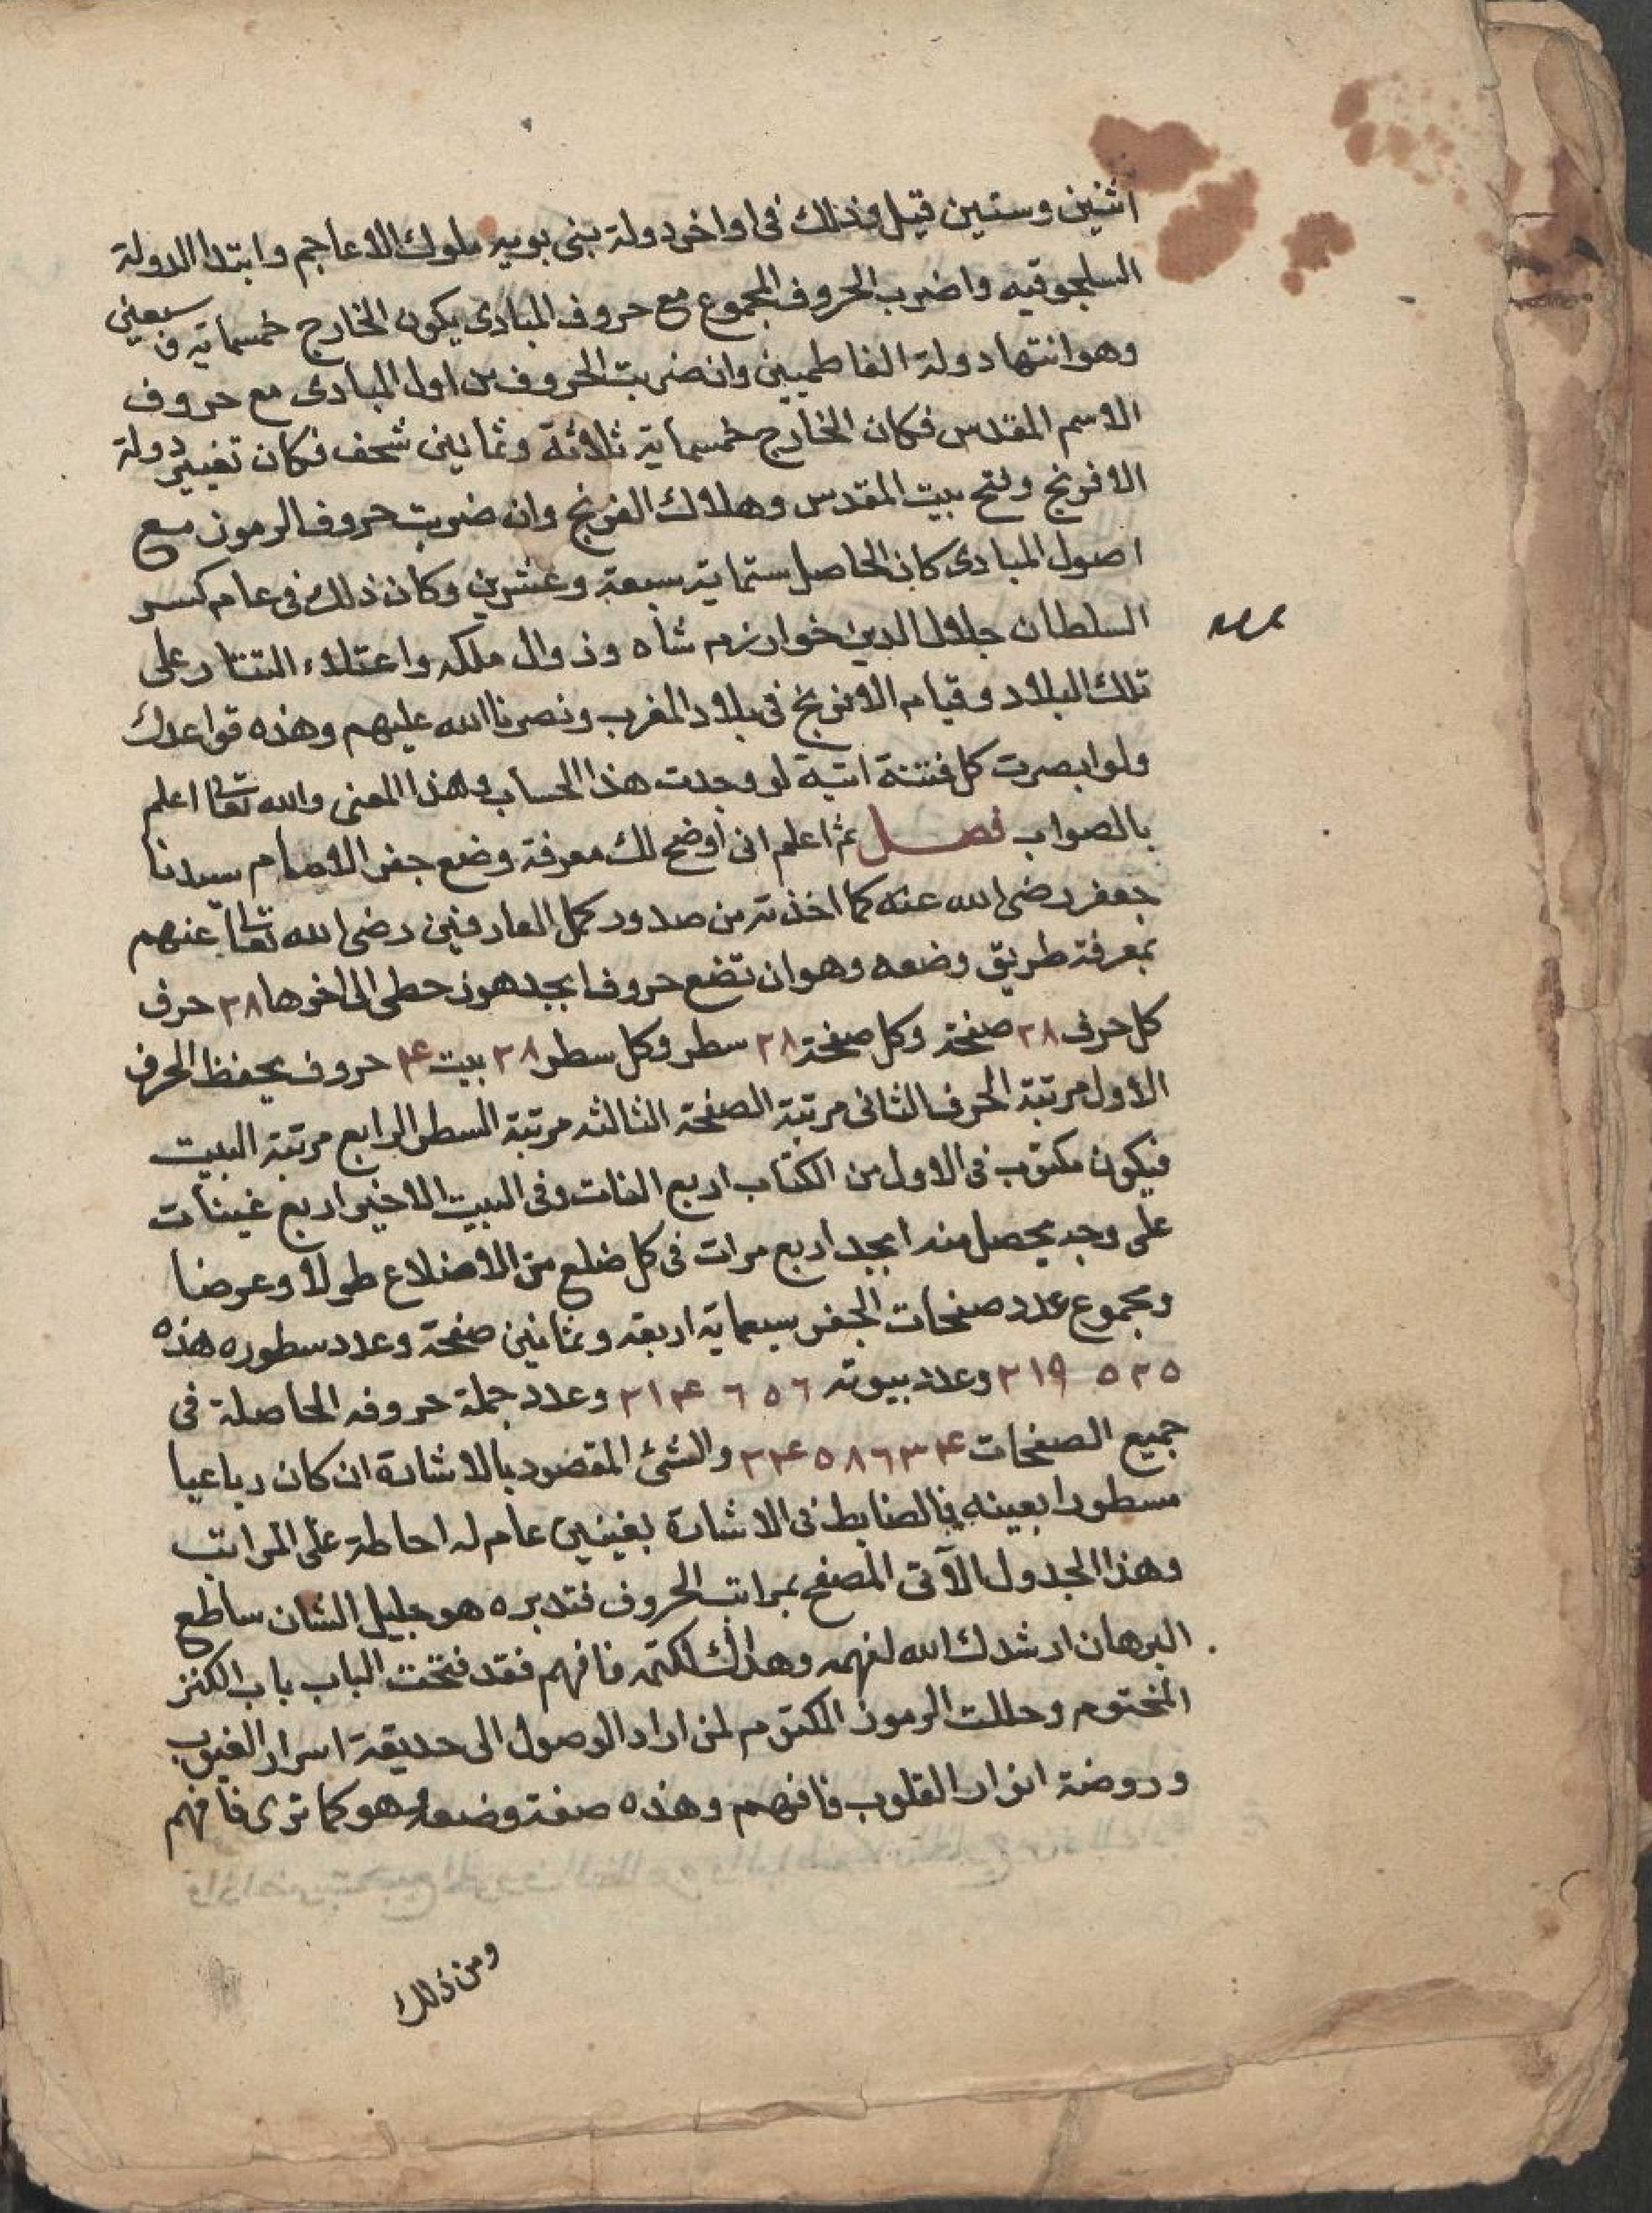 اثنين وستين قتيل وذلك فى اواخر دولة بنى بويه ملوك الاعاجم وابتدا الدولة
السلجوقيه واضرب الحروف المجموع مع حروف المبادى يكون الخارج خمسماية و سبعين
وهو انتها دولة الفاطميين وان ضربت الحروف من اول المبادى مع حروف
الاسم المقدس فكان الخارج خمسماية ثلاثة وثمانين شحف فكان تغيير دولة
الافرنج وفتح بيت المقدس وهلاك الفرنج وان ضربت حروف الرموز مع
اصول المبادى كان الحاصل ستماية سبعة وعشرين وكان ذلك فى عام كسر
السلطان جلال الدين خوارزم شاه وزوال ملكه واعتلاء التتار على
تلك البلاد وقيام الافرنج فى بلاد المغرب ونصرنا الله عليهم وهذه قواعدك
ولو ابصرت كل فتنة اتية لو وجدت هذا الحساب وهذا المعنى والله تعالى اعلم
بالصواب فصل ثم اعلم انى اوضح لك معرفة وضع جفر الامام سيدنا
جعفر رضى الله عنه كما اخذته من صدور كمل العارفين رضى الله تعالى عنهم
بمعرفة طريق وضعه وهو ان تضع حروف ابجد هوز حطى الى اخرها ٢٨ حرف
كل حرف ٢٨ صفحة وكل صفحة ٢٨ سطر وكل سطر ٢٨ بيت ۴ حروف يحفظ الحرف
الاول مرتبة الحرف الثانى مرتبة الصفحة الثالثه مرتبة السطر الرابع مرتبة البيت
فيكون مكتوب فى الاول من الكتاب اربع الفات وفى البيت الاخير اربع غينات
على وجه يحصل منه ابجد اربع مرات فى كل ضلع من الاضلاع طولا وعرضا
ومجموع عدد صفحات الجفر سبعماية اربعة وثمانين صفحة وعدد سطوره هذه
٢١٩ ٥٢٥ وعدد بيوته ٢١۴ ٦ ٥٦ وعدد جملة حروفه الحاصلة فى
جميع الصفحات ٢٢۴٥٨٦٣۴ والشئ المقصود بالاشارة ان كان رباعيا
مسطورا بعينه فالضابط فى الاشارة بغينين عام له احاطة على المراتب
وهذا الجدول الآتى المصفح بمراتب الحروف فتدبره هو جليل الشان ساطع
البرهان ارشدك الله لفهمه وهداك لكتمه فافهم فقد فتحت الباب باب الكنز
المختوم وحللت الرموز المكتوم لمن اراد الوصول الى حديقة اسرار الغيوب
وروضة انوار القلوب فافهم وهذه صفة وضعه وهو كما ترى فافهم
ومن ذلك